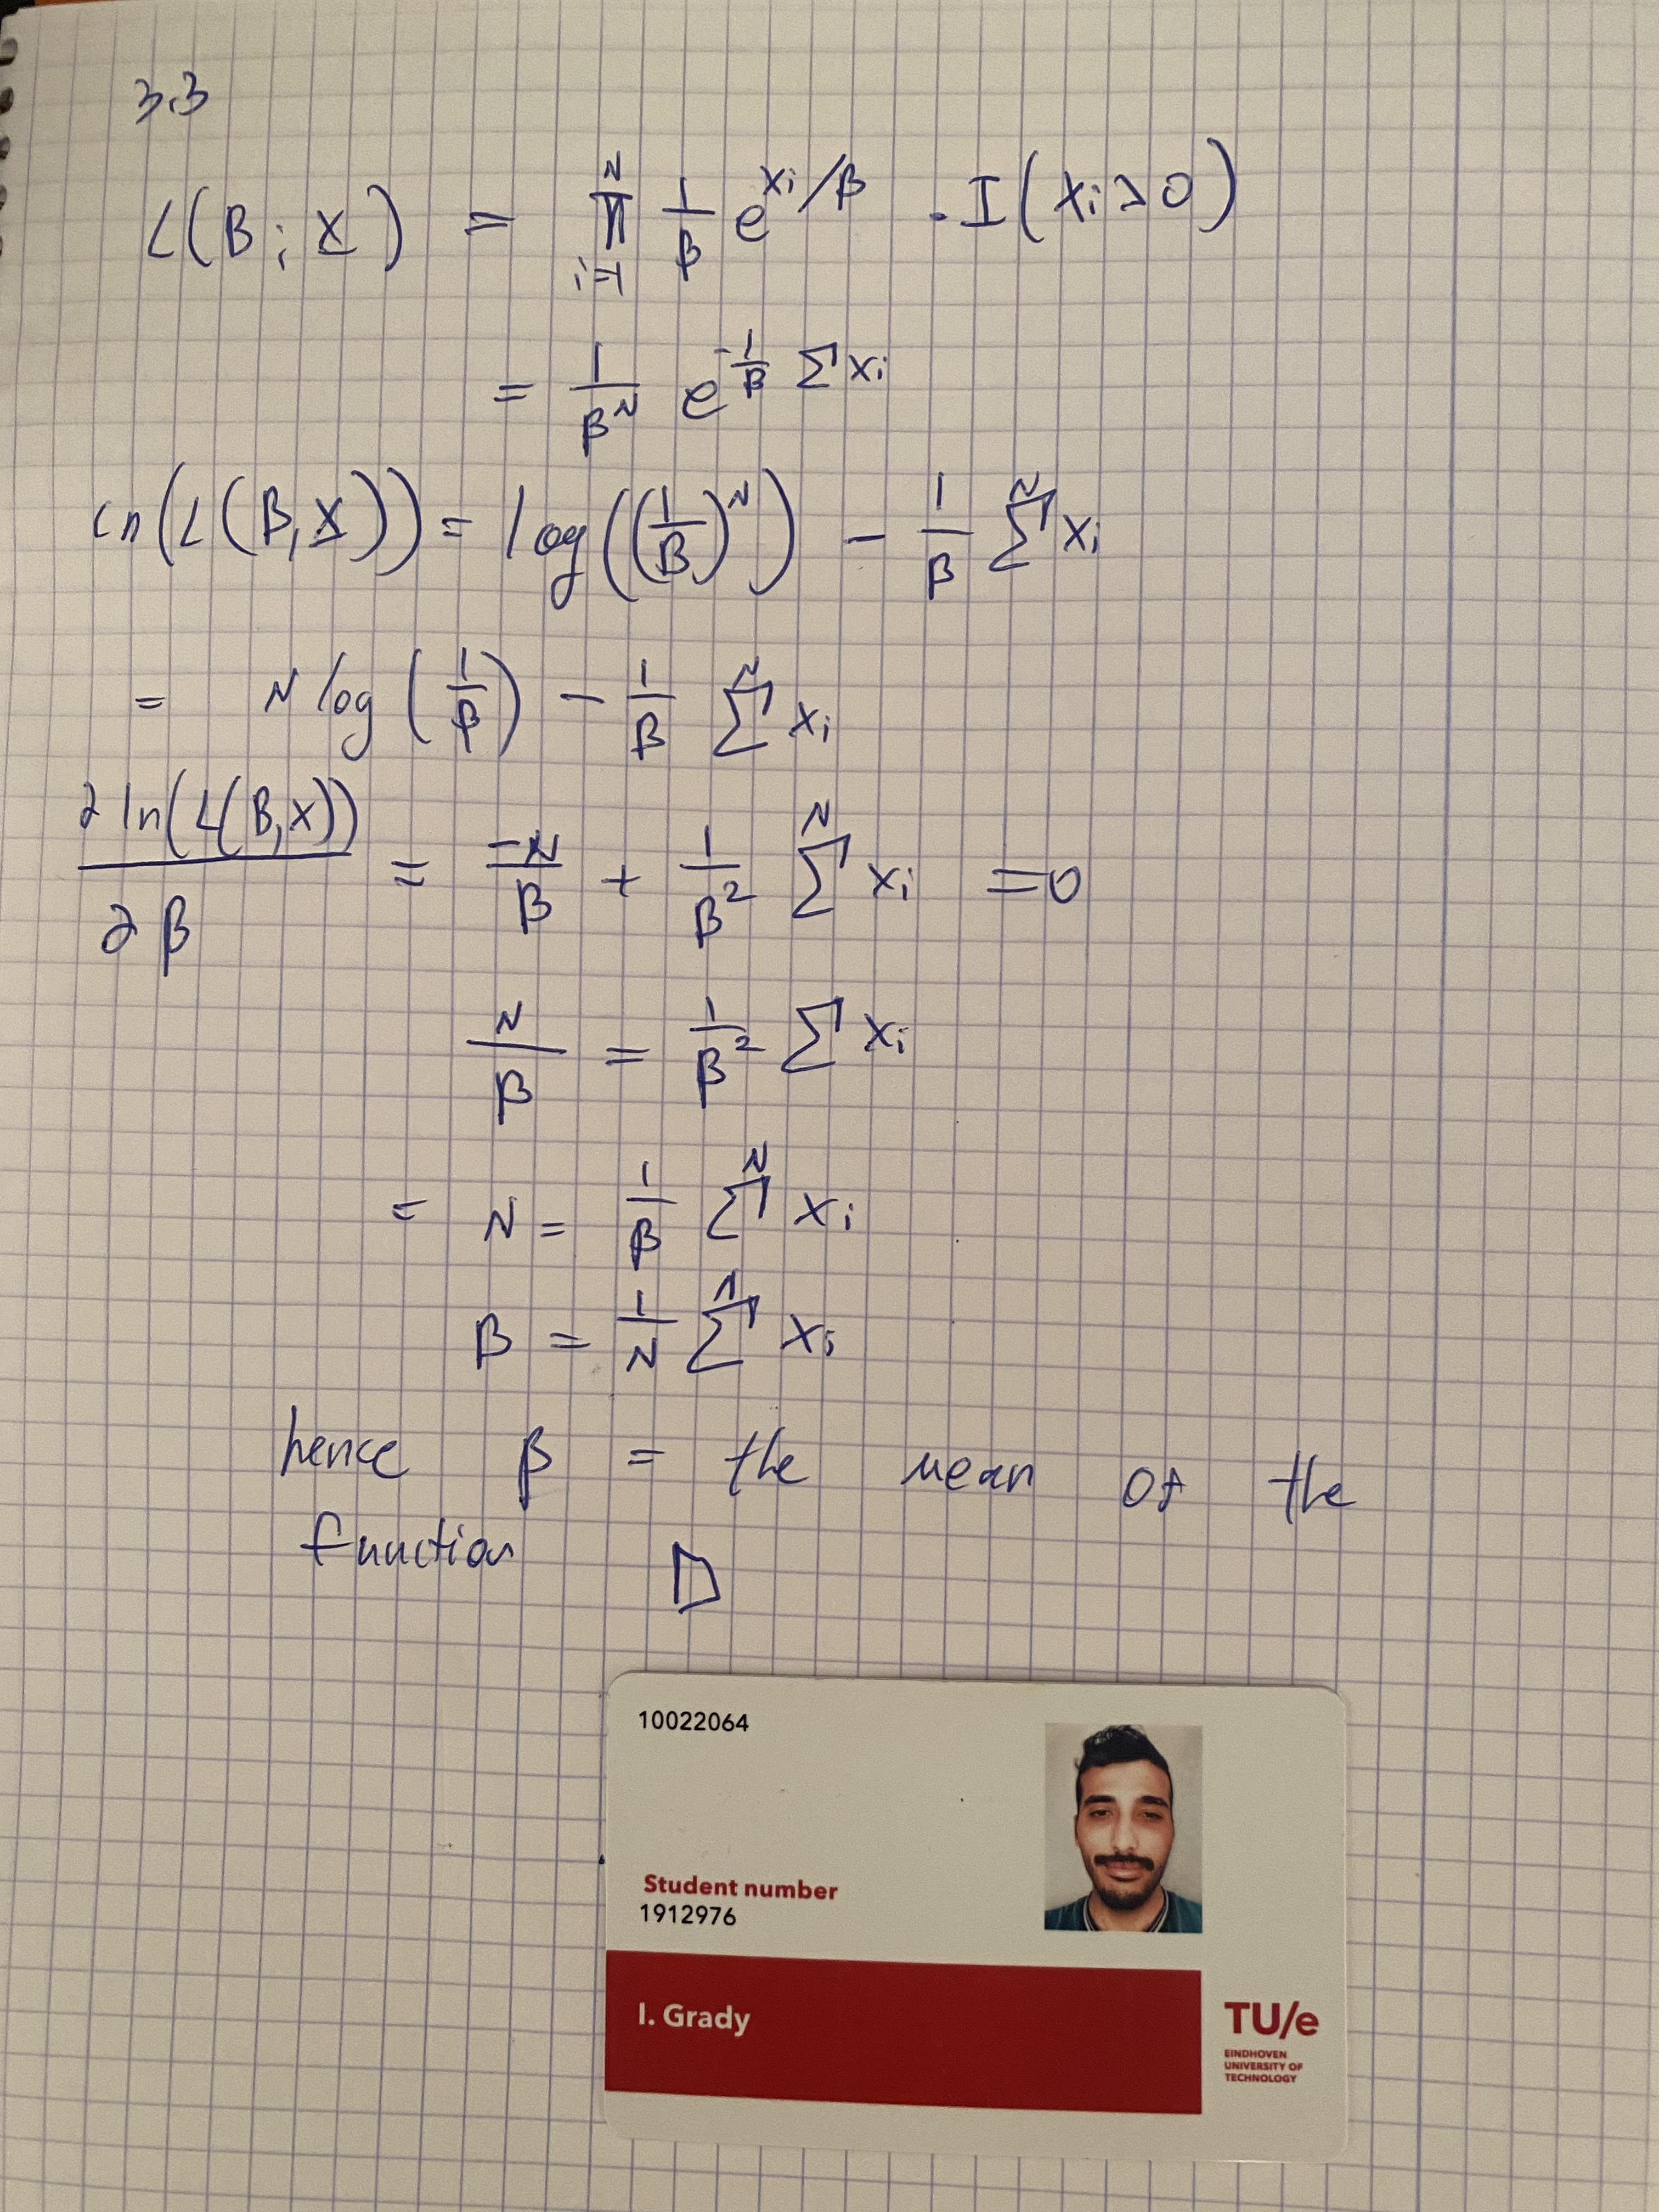 3.3
L(β; X) = ∏_{i=1}^{N} 1/β e^{xi/β} · I(xi ≥ 0)
= 1/β^N e^{-1/β Σ xi}
ln(L(β, X)) = log((1/β)^N) - 1/β Σ^N xi
= N log(1/β) - 1/β Σ^N xi
∂ ln(L(β, x)) / ∂β = -N/β + 1/β² Σ^N xi = 0
N/β = 1/β² Σ xi
= N = 1/β Σ^N xi
β = 1/N Σ^N xi
hence β = the mean of the
function
10022064
Student number
1912976
I. Grady
TU/e
EINDHOVEN
UNIVERSITY OF
TECHNOLOGY